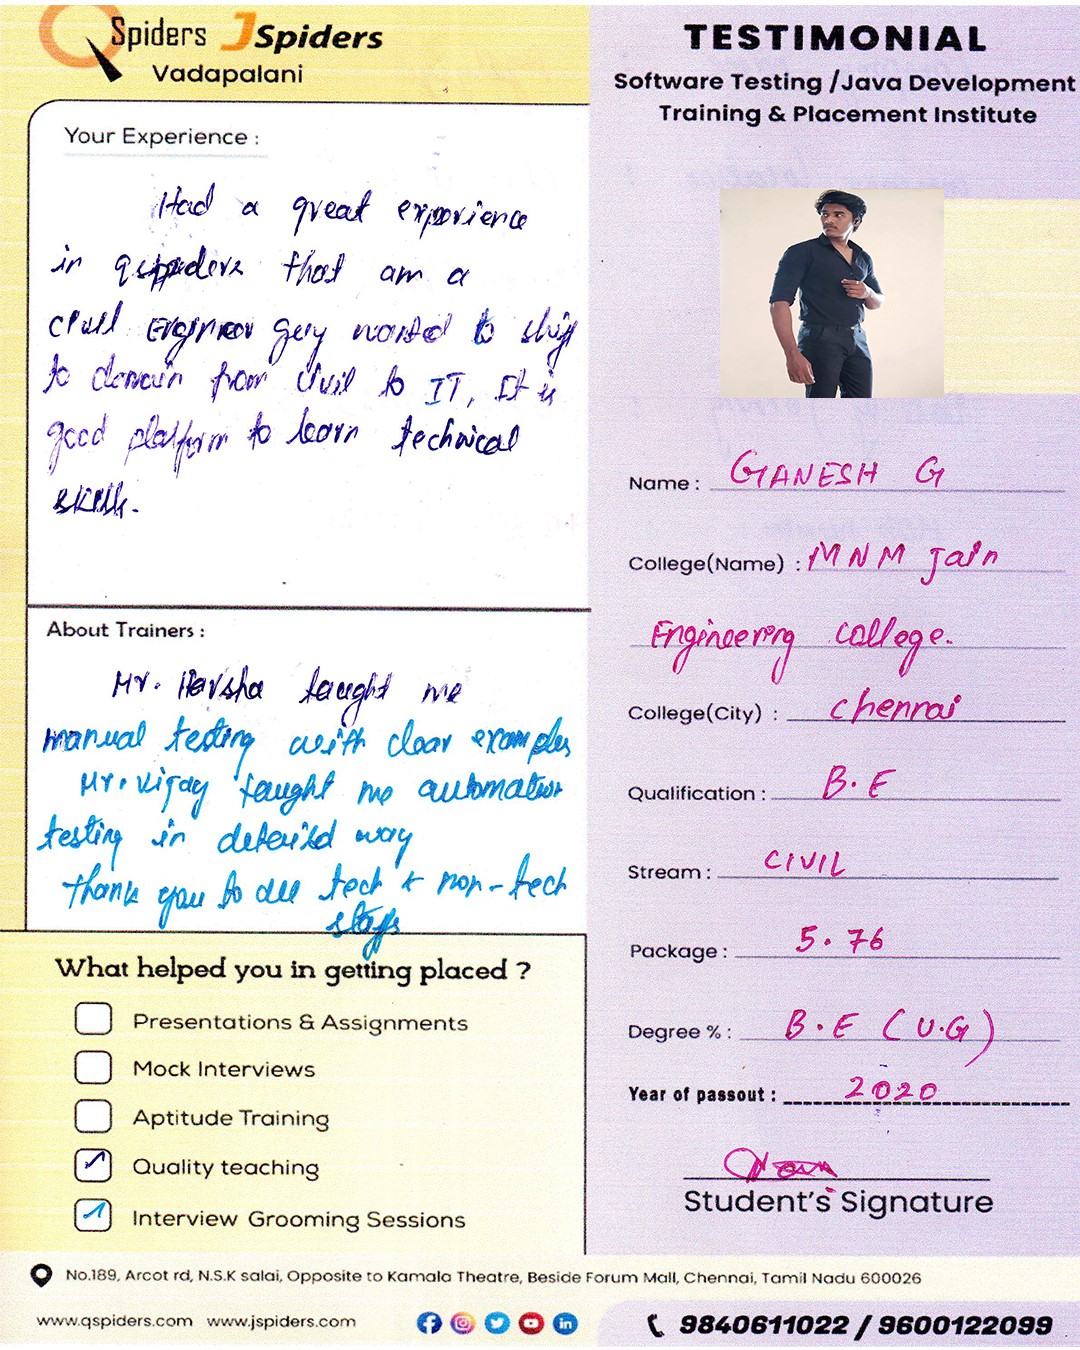 QSpiders JSpiders
Vadapalani
Your Experience :
Had a great experience
in qspiders that am a
civil Engineer guy wanted to shift
to domain from civil to IT, It is
good platform to learn technical
skills.
About Trainers :
Mr. Harsha taught me
manual testing with clear examples
Mr. Vijay taught me automation
testing in detailed way
thank you to all tech & non-tech
staffs
What helped you in getting placed ?
Presentations & Assignments
Mock Interviews
Aptitude Training
Quality teaching
Interview Grooming Sessions
TESTIMONIAL
Software Testing /Java Development
Training & Placement Institute
Name : GANESH G
College(Name) : MNM Jain
Engineering college.
College(City) : chennai
Qualification : B.E
Stream : CIVIL
Package : 5.76
Degree % : B.E (U.G)
Year of passout : 2020
Student's Signature
No.189, Arcot rd, N.S.K salai, Opposite to Kamala Theatre, Beside Forum Mall, Chennai, Tamil Nadu 600026
www.qspiders.com www.jspiders.com
9840611022 / 9600122099